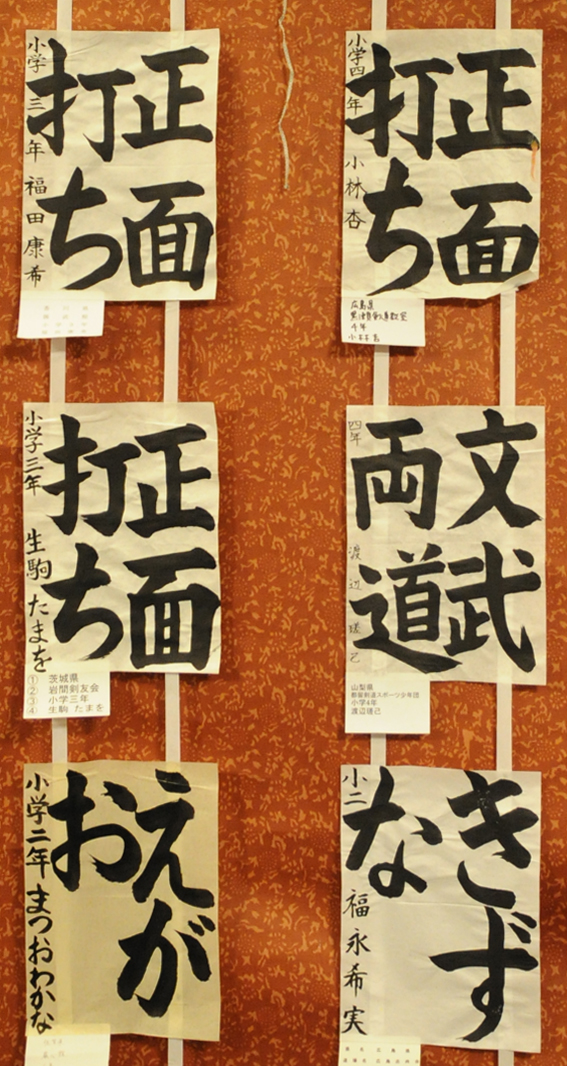 正面
打ち
小学四年 小林杏
広島県
4年
小林杏
正面
打ち
小学三年 福田康希
文武
両道
四年 渡辺
山梨県
都留剣道スポーツ少年団
小学4年
正面
打ち
小学三年 生駒たまを
① 茨城県
② 岩間剣友会
③ 小学三年
④ 生駒 たまを
きず
な
小二 福永希実
えが
お
小学二年 まつおわかな